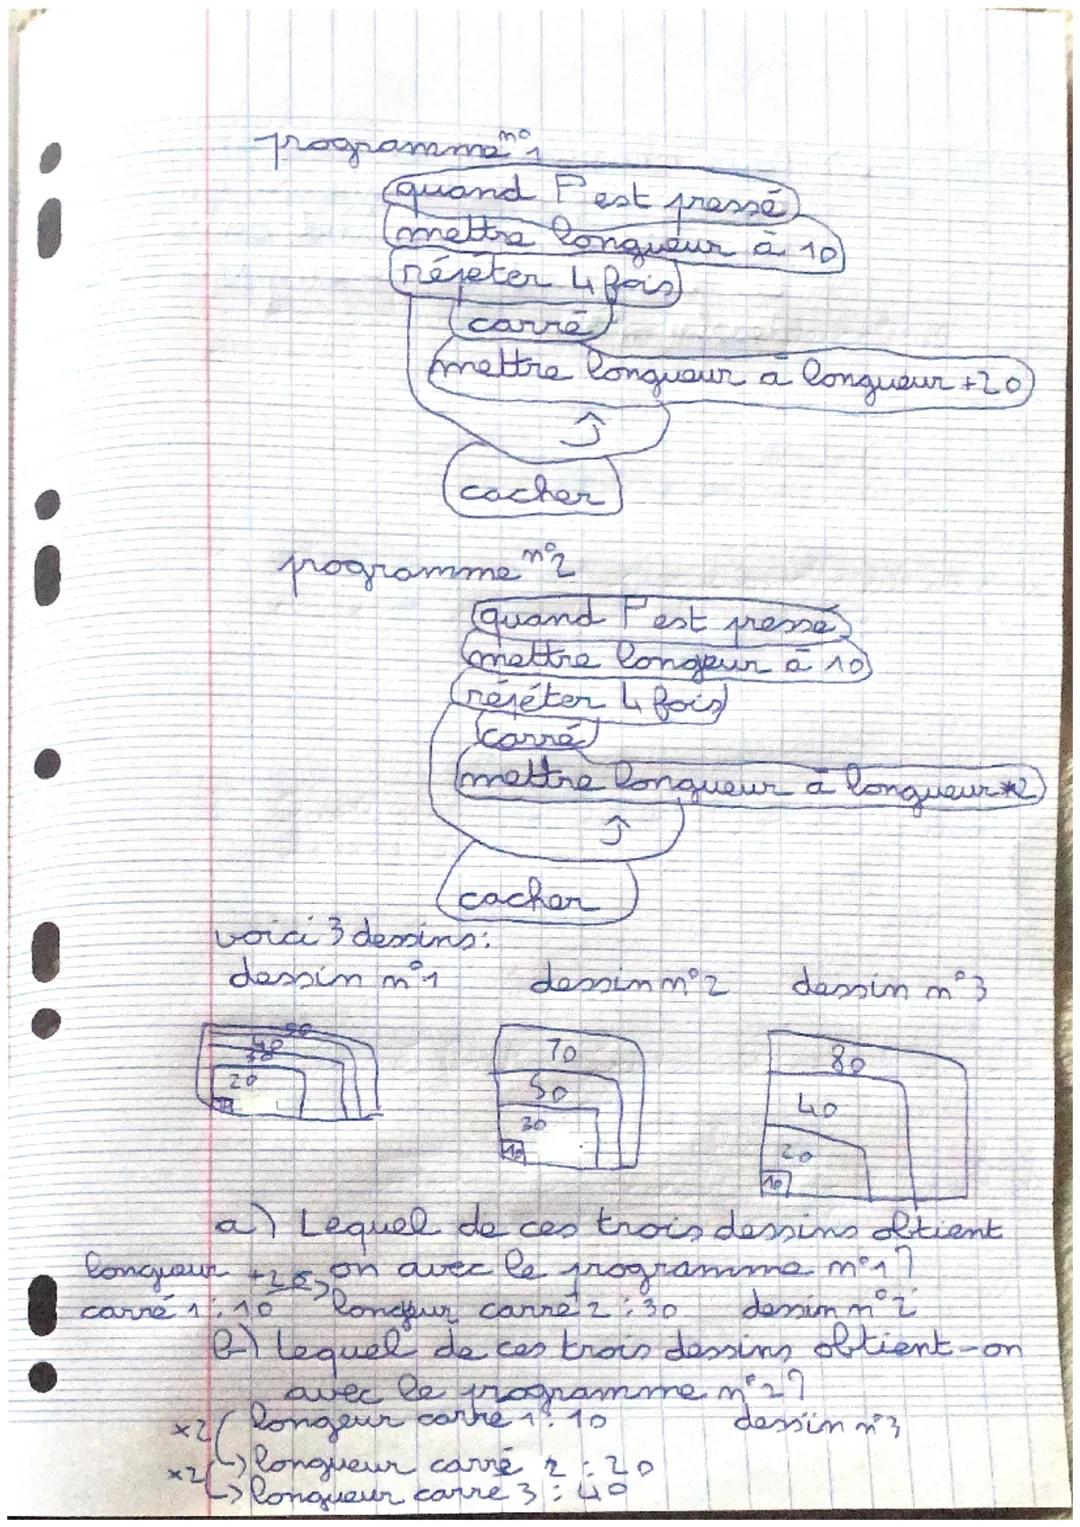 programme n°1
quand P est pressé
mettre longueur à 10
répéter 4 fois
carré
mettre longueur à longueur +20
cacher
programme n°2
quand P est pressé
mettre longeur à 10
répéter 4 fois
carré
mettre longueur à longueur *2
cacher
voici 3 dessins:
dessin n°1 dessin n°2 dessin n°3
70 80
20 50 40
30 20
10 10
a) Lequel de ces trois dessins obtient
longueur +20 on avec le programme n°1?
carré 1 : 10 longueur carré 2 : 30 dessin n°2
b) Lequel de ces trois dessins obtient-on
avec le programme n°2?
x2 longeur carré 1 : 10 dessin n°3
longueur carré 2 : 20
x2 longueur carré 3 : 40